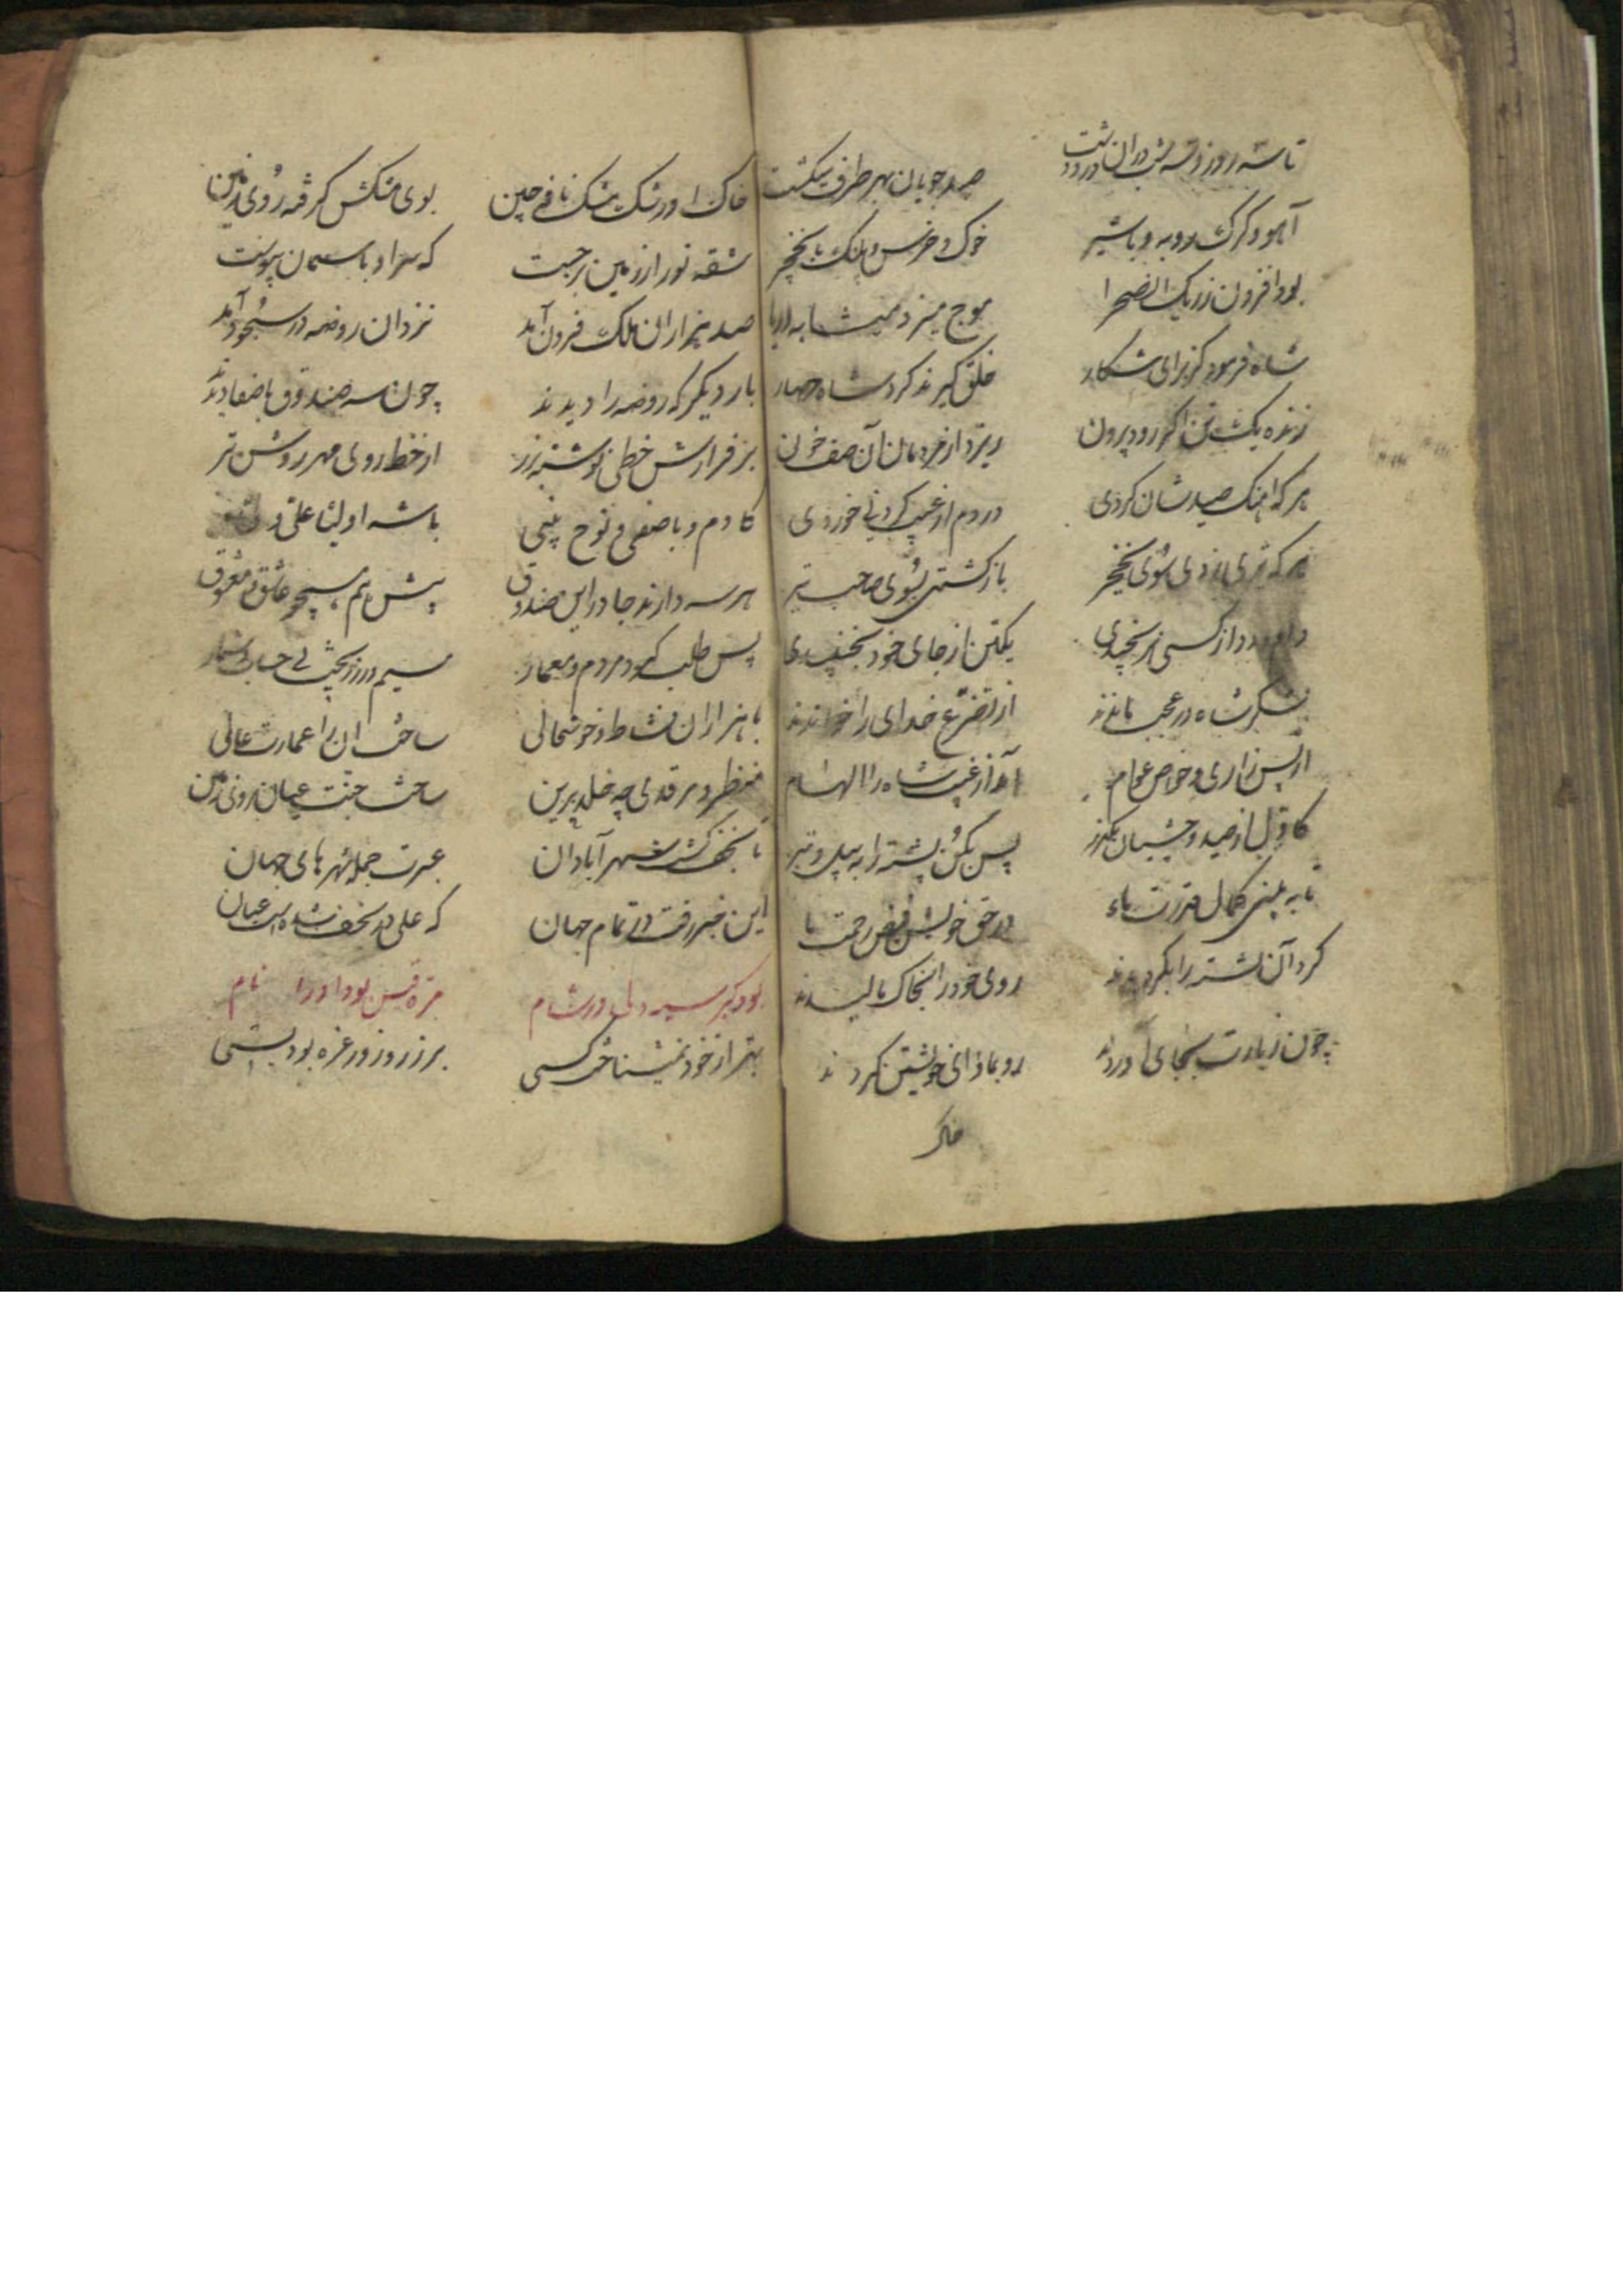 تا سه روز و سه شب دران در و دشت صید جویان بهر طرف میکشت
آهو و کرک و روبه و با شیر خوک و خرس و پلنک با نخچر
بود افزون ز ریک ان صحرا موج میزد بمیشابه دریا
شاه فرمود کز برای شکار خلق کیرند کرد شاه حصار
زنده یک تن اکر رود بیرون ریزد از مردمان آن صف خون
هر که اهنک صیدشان کردی در دم از غیب خوردی
هر که تیری زدی سوی نخچر باز کشتی بسوی صاحب تیر
از کسی یکتن از جای خود نجنبیدی
لشکر شاه در عجب ماندند از تضرع خدای را خواندند
از پس زاری خواص عوام آمد از غیب شاه را الهام
کاول از صید وحشیان بکذر پس بکن پشته را به بیل و تبر
تا به بینی کمال قدرت ماء در حق خویش فیض رحمت ما
کرد آن پشته را بکردیدند روی خود را بخاک مالیدند
چون زیارت بجای آوردند رو بماوای خویشتن کردند
خاک
خاک او رشک مشک نافه چین بوی مشکش کرفته روی زمین
شقه نور از زمین برجست که سر او با سمان پیوست
صد هزاران ملک فرون آمد نزد ان روضه در سجود آمد
بار دیکر که روضه را دیدند چون سه صندوق با صفا دیدند
بر فرازش خطی نوشته بزر از خط روی مهر روشن تر
کادم و با صفی و نوح نبی با شه اولیا علی ولی
هر سه دارند جا در این صندوق پیش هم همچو عاشق و معشوق
پس طلب کرد مردم و معمار سیم و زر بخش بی حساب و شمار
با هزاران نشاط و خوشحالی ساخت ان را عمارت عالی
منظر و مرقدی چه خلد برین ساخت جنت عیان بروی زمین
تا نجف کشت شهر آبادان عبرت جمله شهر های جهان
این خبر رفت در تمام جهان که علی در نجف شده است عیان
بود کبر سیه دلی در شام مره قیس بود او را نام
بهتر از خود نمیشناخت کسی بر زر و زور غره بود بسی